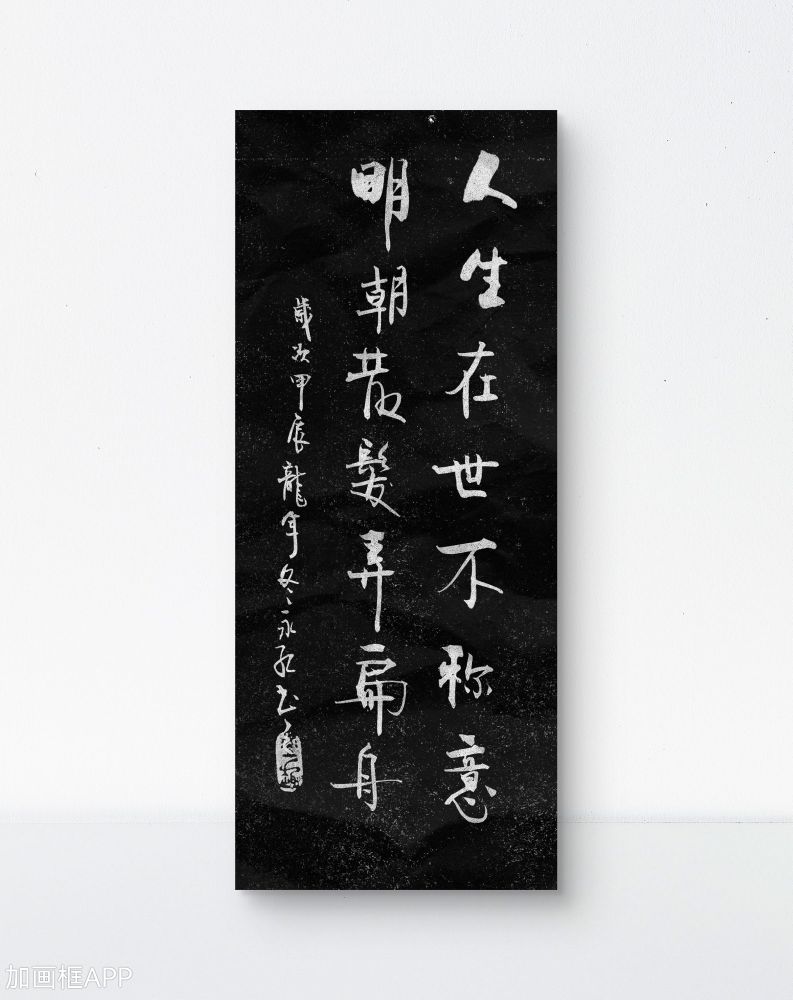 人生在世不称意
明朝散髮弄扁舟
歲次甲辰龍年冬永
加画框APP